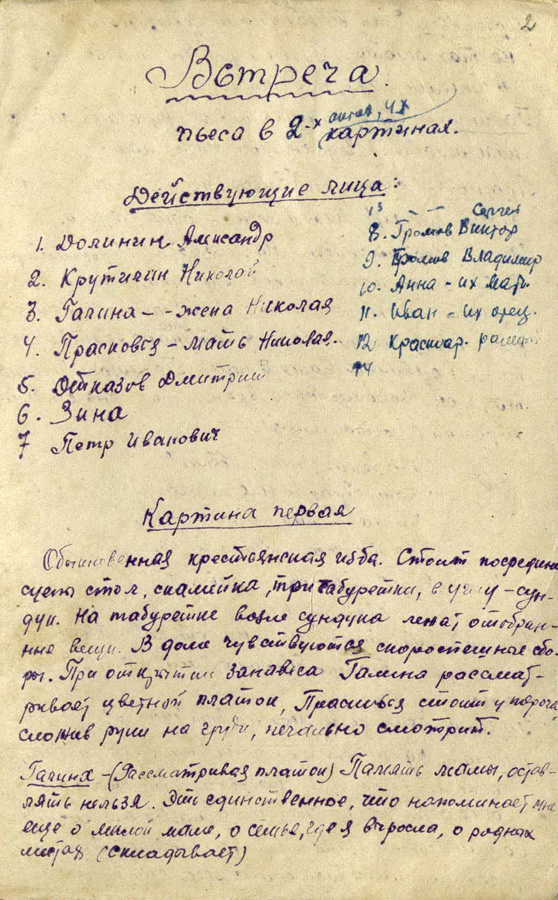 2
Встреча.
пьеса в 2-х актах, 4х картинах.
Действующие лица:
1. Долинин Александр
2. Крутилин Николай
3. Галина - - жена Николая
4. Прасковья - мать Николая.
5. Отказов Дмитрий
6. Зина
7 Петр Иванович
13 - - Сергей
8. Громов Виктор
9. Громов Владимир
10. Анна - их мать
11. Иван - их отец.
12 Красноар.
14
Картина первая
Обыкновенная крестьянская изба. Стоит посредине
сцены стол, скамейка, три табуретки, в углу - сун-
дук. На табуретке возле сундука лежат отобран-
ные вещи. В доме чувствуются скороспешные сбо-
ры. При открытии занавеса Галина рассмат-
ривает цветной платок, Прасковья стоит у порога
сложив руки на груди, печально смотрит.
Галина - (Рассматривая платок) Память мамы, остав-
лять нельзя. Это единственное, что напоминает мне
еще о милой маме, о семье, где я выросла, о родных
местах (складывает)